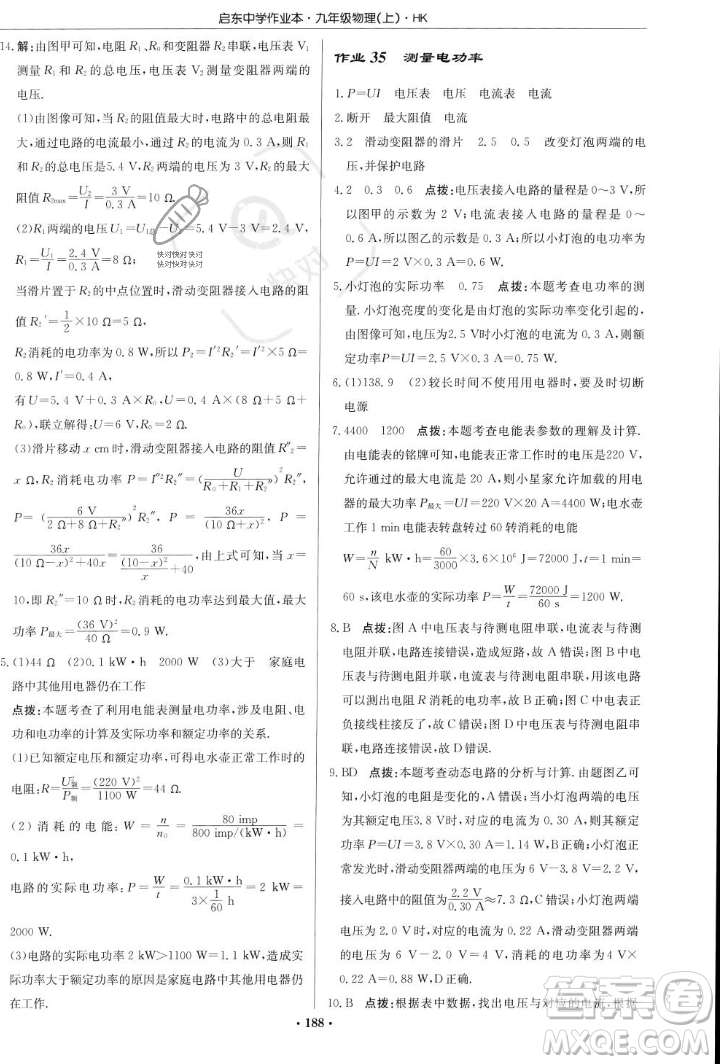 启东中学作业本·九年级物理(上)·HK
14.解:由图甲可知,电阻R₁、R₀和变阻器R₂串联,电压表V₁
测量R₁和R₂的总电压,电压表V₂测量滑动变阻器两端的
电压.
(1)由图像可知,当R₂的阻值最大时,电路中的电阻最
大,通过电路的电流最小,电路中的电流是0.3 A,R₁、R₂
两端的总电压是5.4 V,R₂两端的电压为3 V,R₂的最大
阻值R₂max=U₂/I=3 V/0.3 A=10 Ω.
(2)R₁两端的电压U₁=U总-U₂=5.4 V-3 V=2.4 V,
R₁=U₁/I=2.4 V/0.3 A=8 Ω;
快对快对快对
快对快对快对
当滑片置于R₂的中点位置时,滑动变阻器接入电路的电
阻R₂′=1/2×10 Ω=5 Ω,
R₂消耗的电功率为0.8 W,所以P₂=I′²R₂′=I′²×5 Ω=
0.8 W,I′=0.4 A,
有U=5.4 V+0.3 A×R₀,U=0.4 A×(8 Ω+5 Ω+
R₀),联立解得:U=6 V,R₀=2 Ω.
(3)滑片移动x cm时,滑动变阻器接入电路的阻值R″₂
=x,R₂消耗电功率P=I″²R₂″=(U/(R₀+R₁+R₂″))²R₂″,
P=(6 V/(2 Ω+8 Ω+R₂″))²R₂″,P=
36x/((10 Ω-x)²+40x)=36/((10-x)²/x+40),由上式可知,当x=
10,即R₂″=10 Ω时,R₂消耗的电功率达到最大值,最大
功率P最大=(36 V)²/40 Ω=0.9 W.
5.(1)44 Ω (2)0.1 kW·h 2000 W (3)大于 家庭电
路中其他用电器仍在工作
点拨:本题考查了利用电能表测量电功率,涉及电阻、电
功和电功率的计算公式及实际功率和额定功率的关系.
(1)已知额定电压和额定功率,可得电水壶正常工作时的
电阻:R=U²额/P额=(220 V)²/1100 W=44 Ω.
(2)消耗的电能:W=n/n₀=80 imp/800 imp/(kW·h)=
0.1 kW·h;
电路的实际电功率:P=W/t=0.1 kW·h/(3×1/60 h)=2 kW=
2000 W.
(3)电路的实际电功率2 kW>1100 W=1.1 kW,造成实
际功率大于额定功率的原因是家庭电路中其他用电器仍
在工作.
作业35 测量电功率
1.P=UI 电压表 电压 电流表 电流
2.断开 最大阻值 电流
3.2 滑动变阻器的滑片 2.5 0.5 改变灯泡两端的电
压,并保护电路
4.2 0.3 0.6 点拨:电压表接入电路的量程是0~3 V,
所以图甲的示数为2 V;电流表接入电路的量程是0~
0.6 A,所以图乙的示数为0.3 A;小灯泡的实际功率为
P=UI=2 V×0.3 A=0.6 W.
5.小灯泡的实际功率 0.75 点拨:本题考查电功率的测
量.小灯泡亮度的变化是由灯泡的实际功率变化引起的,
由题意可知,小灯泡的电压为2.5 V时的电功率即为额
定功率P=UI=2.5 V×0.3 A=0.75 W.
6.(1)138.9 (2)较长时间不使用用电器时,要及时切断
电源
7.4400 1200 点拨:本题考查电能表参数的理解及计算.
由电能表的铭牌可知,电能表正常工作的电压是220 V,
允许通过的最大电流是20 A,则小星家允许加载的用电
器的最大功率P最大=UI=220 V×20 A=4400 W;电水壶
工作1 min电能表转盘转过60转消耗的电能
W=n/N kW·h=60/3000×3.6×10⁶ J=72000 J,t=1 min=
60 s,该电水壶的实际功率P=W/t=72000 J/60 s=1200 W.
8.B 点拨:图A中电压表与待测电阻串联,电流表与待测
电阻并联,会造成短路,故不行;图B中电流表与待测电
阻串联,电压表与待测电阻并联,则可以读数,故该电路
可以测出未知电阻R消耗的电功率;图C中电流表的正
负接线柱接反了,故不行;图D中电压表与待测电阻串
联,会造成断路,故不行.
9.BD 点拨:本题考查动态电路的分析与计算.由题图乙可
知,小灯泡的电阻是变化的,A错误;当小灯泡两端的电压
为3.8 V时,对应的电流为0.30 A,所以小灯泡的额定功率
为P=UI=3.8 V×0.30 A=1.14 W,B正确;小灯泡正
常发光时,滑动变阻器两端的电压为6 V-3.8 V=2.2 V,
接入电路中的阻值为2.2 V/0.30 A≈7.3 Ω,C错误;小灯泡两端
电压为2.0 V时,对应的电流为0.22 A,滑动变阻器两端
的电压为6 V-2.0 V=4.0 V,消耗的电功率为4.0 V
×0.22 A=0.88 W,D正确.
10.B 点拨:根据表中数据,找出电压与对应的电流,根据
·188·
答案圈